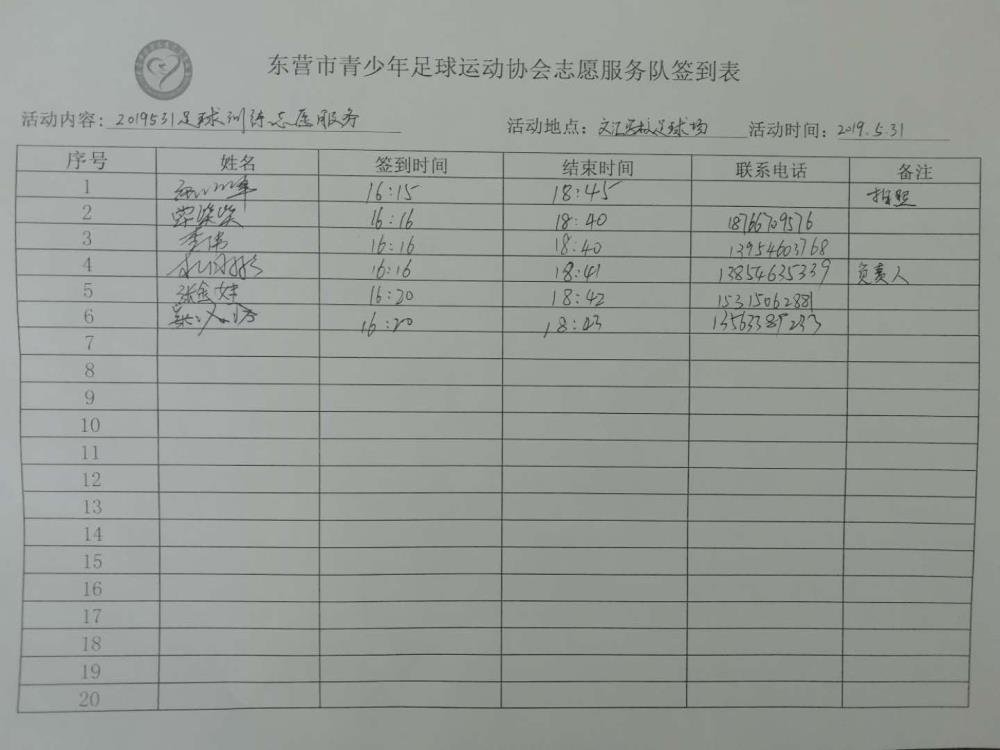 东营市青少年足球运动协会志愿服务队签到表
活动内容：2019531足球训练志愿服务 活动地点：文汇学校足球场 活动时间：2019.5.31
序号 姓名 签到时间 结束时间 联系电话 备注
1 16:15 18:45 拍照
2 16:16 18:40 18766709576
3 李伟 16:16 18:40 13954603768
4 16:16 18:41 13854635339 负责人
5 16:20 18:42 15315062881
6 16:20 18:43
7
8
9
10
11
12
13
14
15
16
17
18
19
20